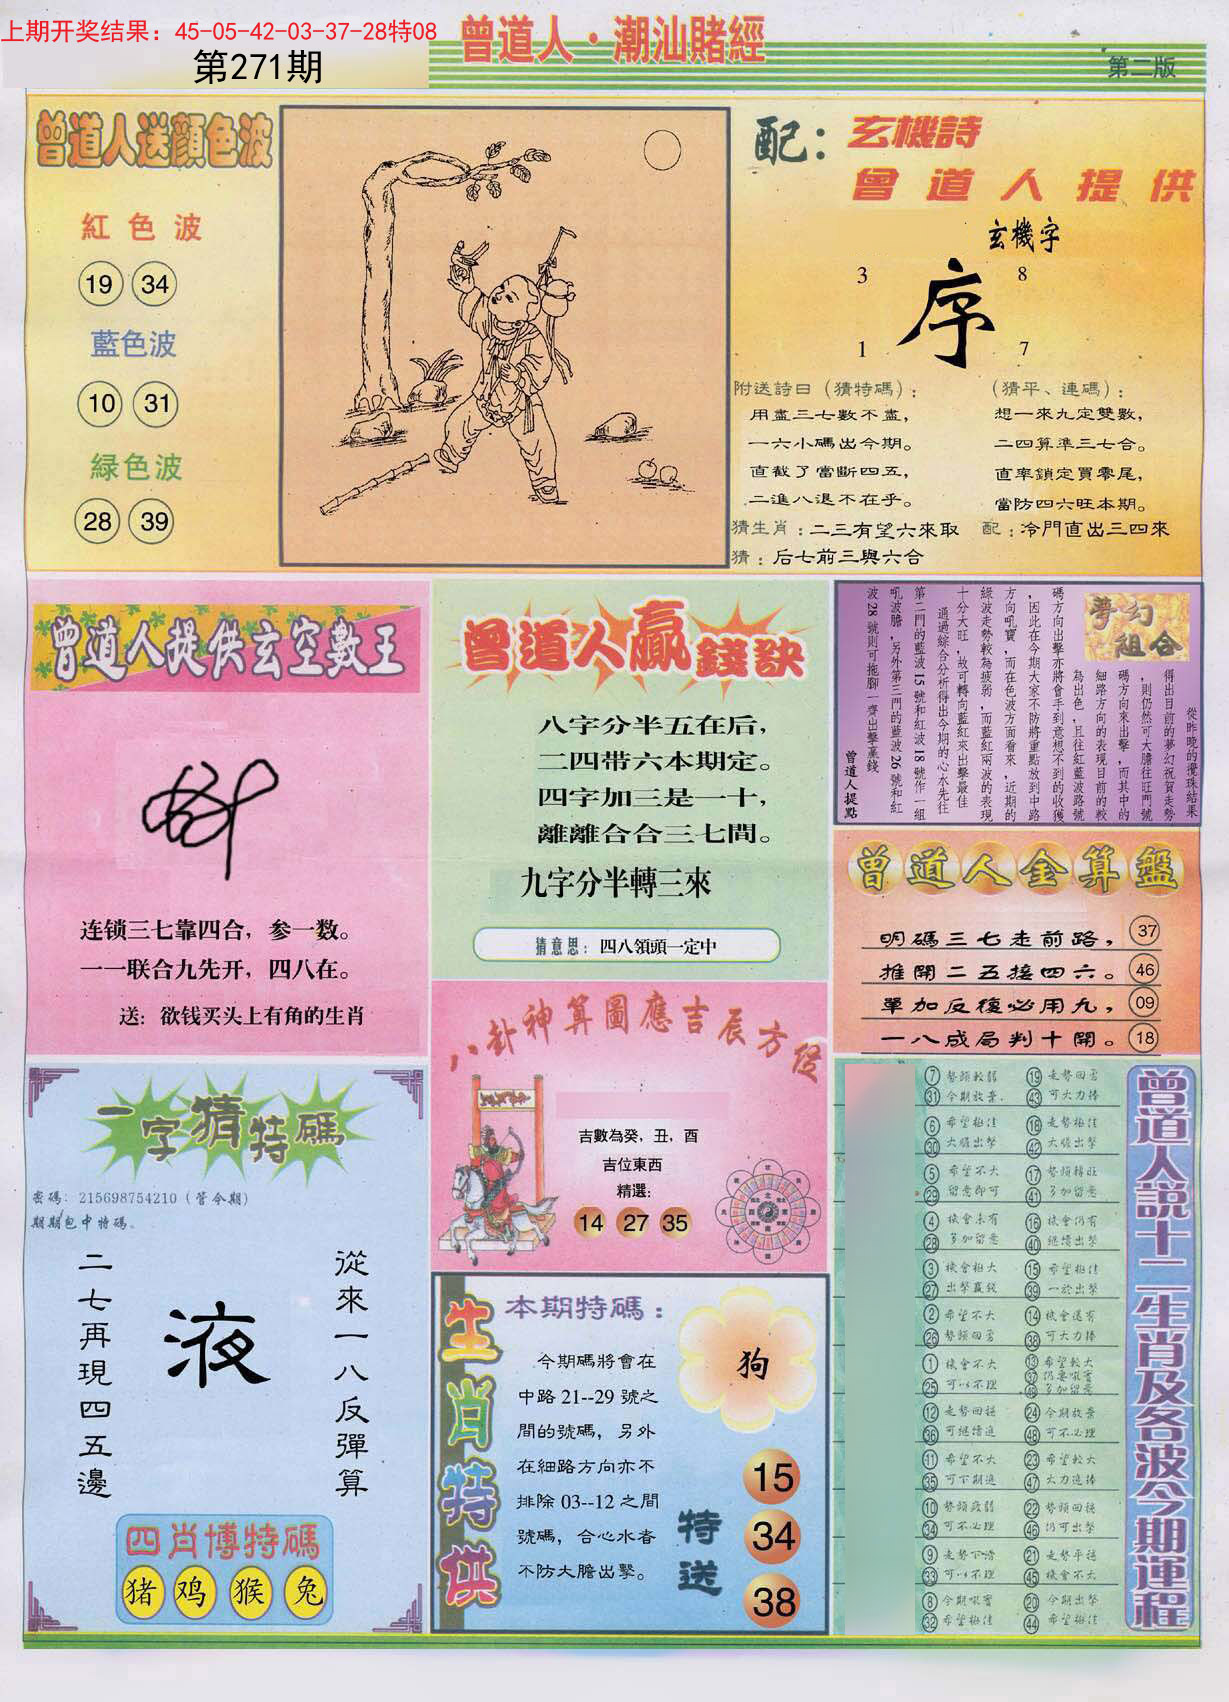 上期开奖结果：45-05-42-03-37-28特08
第271期
曾道人·潮汕賭經
第二版
曾道人送顔色波
紅色波
19 34
藍色波
10 31
緑色波
28 39
配：玄機詩
曾道人提供
玄機字
3 8
序
1 7
附送詩曰（猜特碼）：
用盡三七數不盡，
一六小碼出今期。
直截了當斷四五，
二進八退不在乎。
（猜平、連碼）：
想一來九定雙數，
二四算準三七合。
直率鎖定買零尾，
當防四六旺本期。
猜生肖：二三有望六來取
配：冷門直出三四來
猜：后七前三與六合
曾道人提供玄空數王
连锁三七靠四合，参一数。
一一联合九先开，四八在。
送：欲钱买头上有角的生肖
曾道人贏錢訣
八字分半五在后，
二四带六本期定。
四字加三是一十，
離離合合三七間。
九字分半轉三來
猜意思：四八領頭一定中
夢幻組合
從昨晚的攪珠結果
得出目前的夢幻祝賀走勢
，則仍然可大膽往旺門號
碼方向來出擊，而其中的
細路方向的表現目前的較
為出色，且往紅藍波路號
碼方向出擊亦將會手到意想不到的收獲
，因此在今期大家不防將重點放到中路
方向吼寶，而在色波方面看來，近期的
綠波走勢較為疲弱，而藍紅兩波的表現
十分大旺，故可轉向藍紅來出擊最佳
通過綜合分析得出今期的心水先往
第二門的藍波15號和紅波18號作一組
吼波膽，另外第三門的藍波26號和紅
波28號則可拖腳一齊出擊贏錢
曾道人提點
曾道人金算盤
明碼三七走前路， 37
推開二五接四六。 46
單加反復必用九， 09
一八成局判十開。 18
八卦神算圖應吉辰方位
吉數為癸，丑，酉
吉位東西
精選：
14 27 35
一字猜特碼
密碼：215698754210（管今期）
期期包中特碼。
從來一八反彈算
液
二七再現四五邊
四肖博特碼
猪 鸡 猴 兔
生肖特供
本期特碼：
今期碼將會在
中路21--29號之
間的號碼，另外
在細路方向亦不
排除03--12之間
號碼，合心水者
不防大膽出擊。
狗
特送
15
34
38
曾道人説十二生肖及各波今期運程
7 31 勢頭較弱 今期放棄
19 43 走勢回勇 可大力捧
6 30 希望極佳 大膽出擊
18 42 走勢極佳 大膽出擊
5 29 希望不大 留意即可
17 41 勢頭轉旺 多加留意
4 28 機會未有 多加留意
16 40 機會仍有 繼續出擊
3 27 機會極大 出擊贏錢
15 39 希望極佳 一於出擊
2 26 希望不大 勢頭回勇
14 38 機會還有 可大力捧
1 25 機會不大 可以不理
13 37 49 希望較大 仍要吼實 多加留意
12 36 走勢回穩 可繼續追
24 48 今期放棄 可不必理
11 35 希望不大 可下期追
23 47 希望較大 大力追捧
10 34 勢頭疲弱 可不必理
22 46 勢頭回穩 仍可出擊
9 33 走勢下滑 可以不理
21 45 走勢平穩 機會不大
8 32 今期吼實 希望極佳
20 44 今期出擊 希望極佳